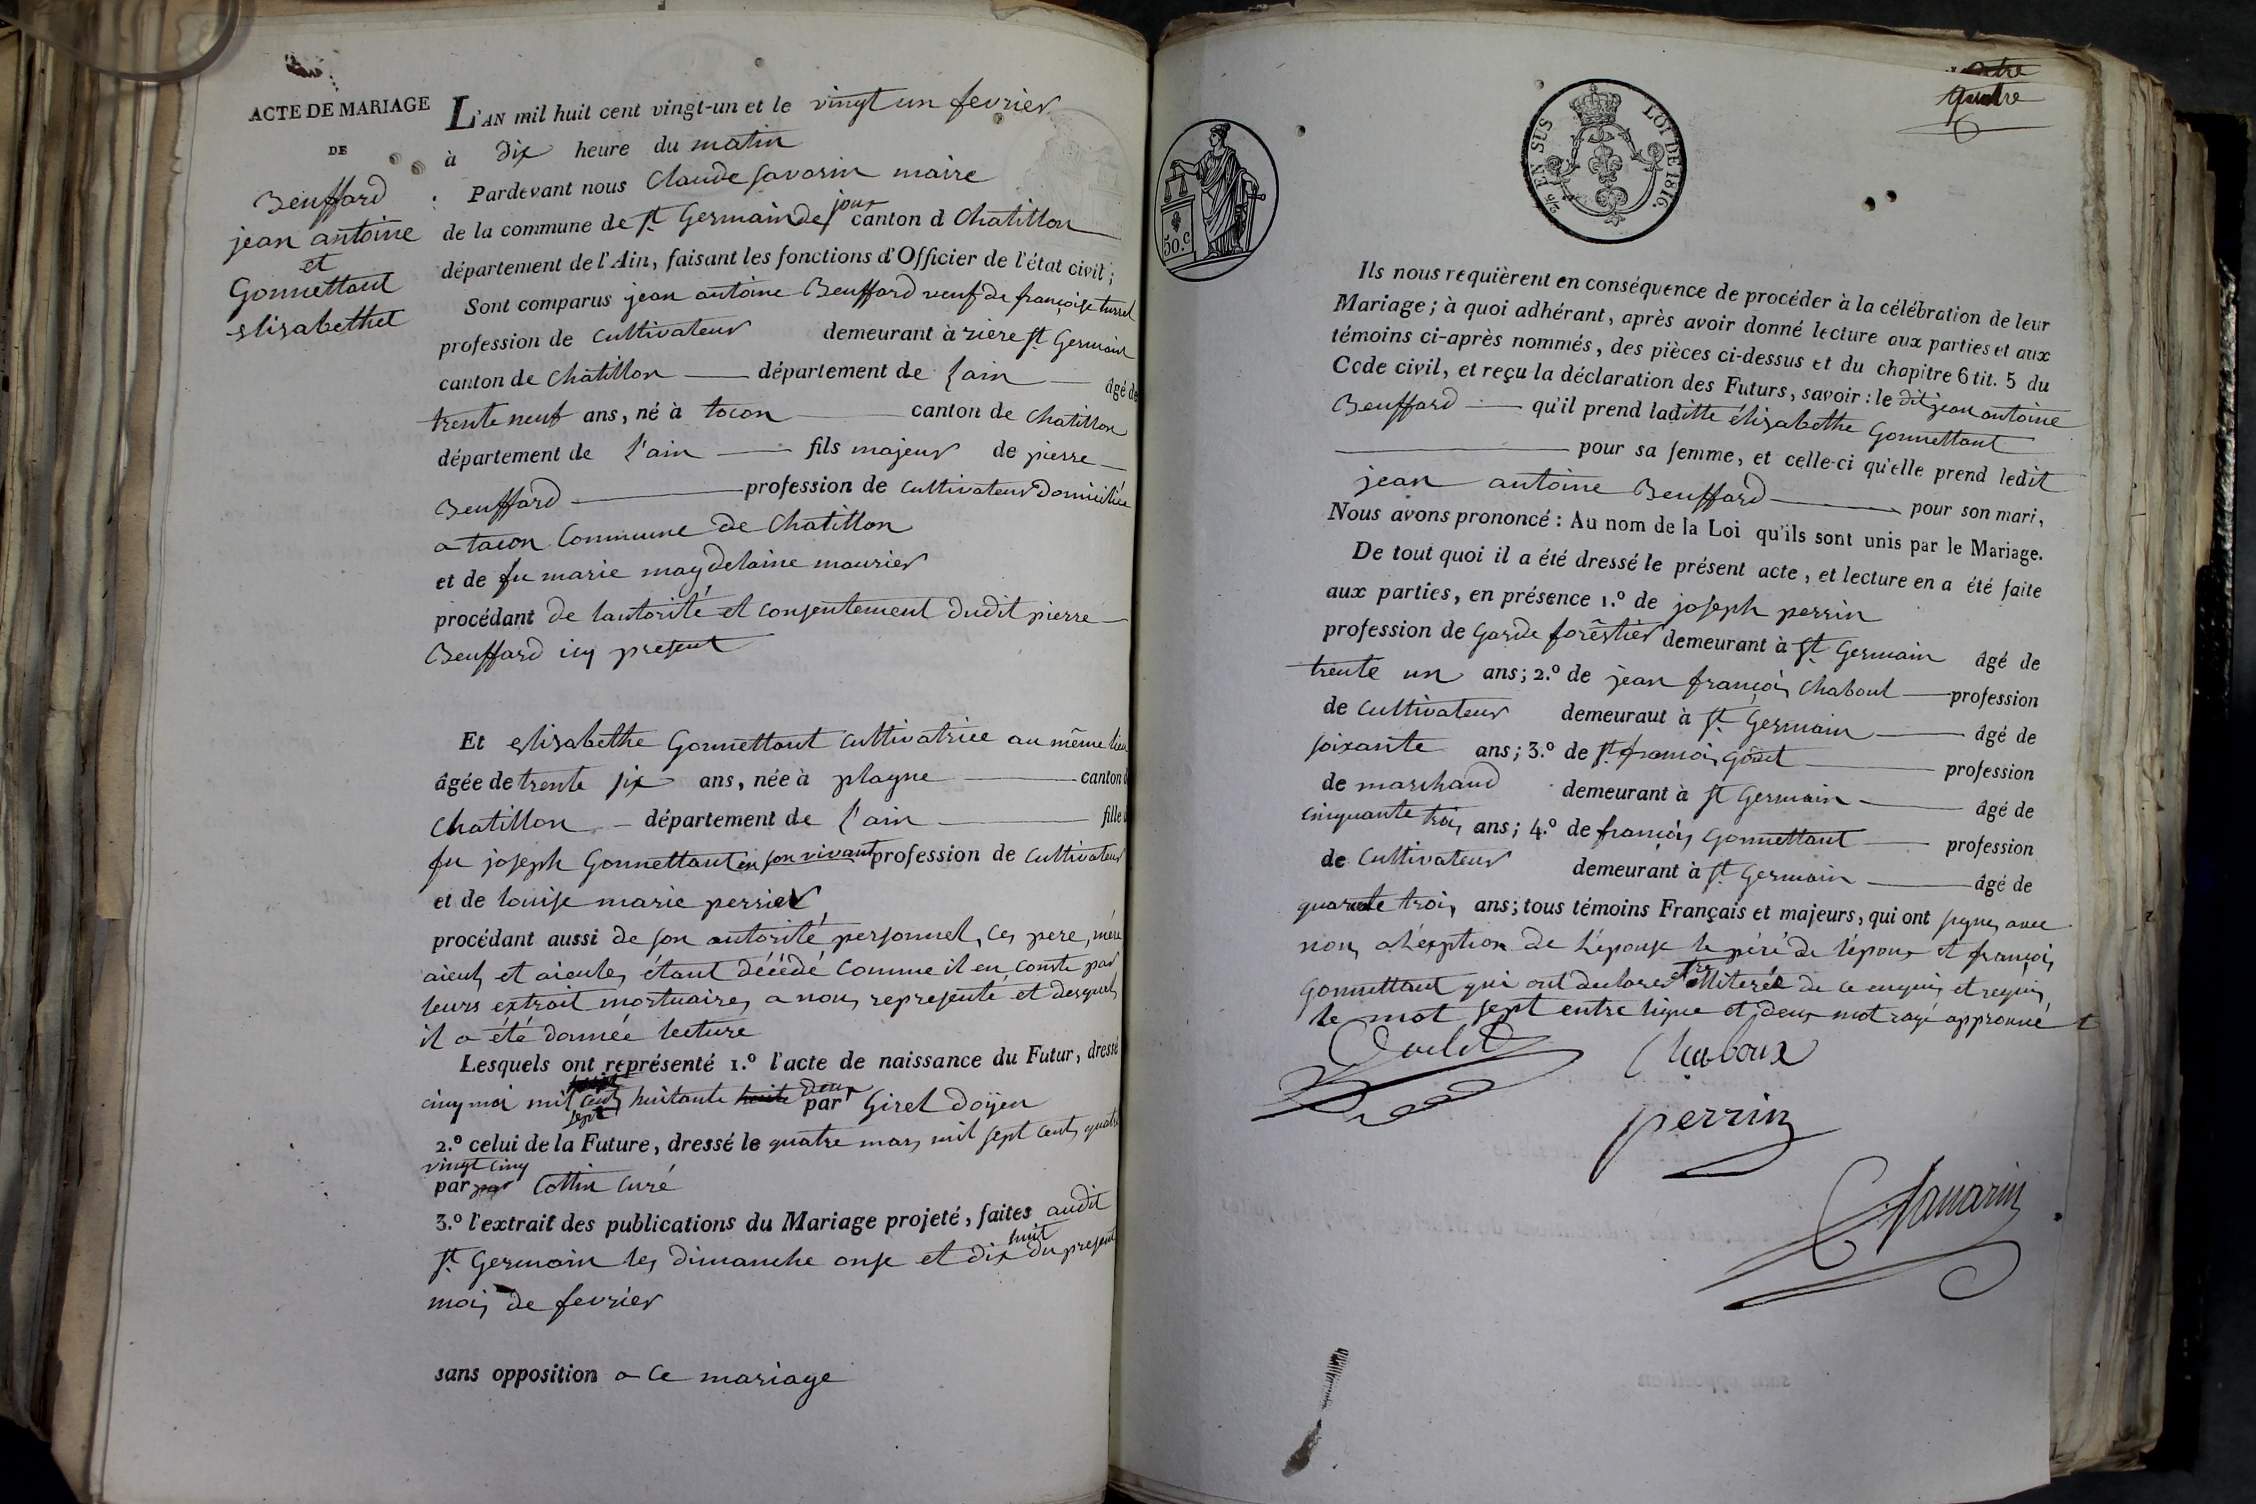 ACTE DE MARIAGE
DE
Beuffard
jean antoine
et
Gonnettant
elisabethe
L'AN mil huit cent vingt-un et le vingt un fevrier
à dix heure du matin
Pardevant nous Claude savarin maire
de la commune de St Germain de joux canton d Chatillon
département de l'Ain, faisant les fonctions d'Officier de l'état civil;
Sont comparus jean antoine Beuffard veuf de françoise turrel
profession de cultivateur demeurant à rière St Germain
canton de Chatillon département de lain âgé de
trente neuf ans, né à tocon canton de Chatillon
département de l'ain fils majeur de pierre
Beuffard profession de cultivateur domiciliée
a tacon Commune de Chatillon
et de fu marie magdelaine maurier
procédant de lautorité et consentement dudit pierre
Beuffard icy present
Et elisabethe Gonnettant cultivatrice au même lieu
âgée de trente six ans, née à plagne canton d
Chatillon département de l'ain fille d
fu joseph Gonnettant en son vivant profession de cultivateur
et de louise marie perrier
procédant aussi de son autorité personnel, ces pere, mére
aieul, et aieule, étant décédé comme il en conste par
leurs extrait mortuaire, a nous representé et desquel,
il a été donnée lecture
Lesquels ont représenté 1.º l'acte de naissance du Futur, dressé
cinq mai mil sept cent huitante deux par Girel doÿen
2.º celui de la Future, dressé le quatre mars mil sept cent quatre
vingt cinq
par Cottin curé
3.º l'extrait des publications du Mariage projeté, faites audit
St Germain les dimanche onse et dix huit du present
mois de fevrier
sans opposition a ce mariage
quatre
50.C
2/5 EN SUS LOI DE 1816.
Ils nous requièrent en conséquence de procéder à la célébration de leur
Mariage; à quoi adhérant, après avoir donné lecture aux parties et aux
témoins ci-après nommés, des pièces ci-dessus et du chapitre 6 tit. 5 du
Code civil, et reçu la déclaration des Futurs, savoir: le dit jean antoine
Beuffard qu'il prend laditte élisabethe Gonnettant
pour sa femme, et celle-ci qu'elle prend ledit
jean antoine Beuffard pour son mari,
Nous avons prononcé: Au nom de la Loi qu'ils sont unis par le Mariage.
De tout quoi il a été dressé le présent acte, et lecture en a été faite
aux parties, en présence 1.º de joseph perrin
profession de Garde forêstier demeurant à St Germain âgé de
trente un ans; 2.º de jean françois Chaboul profession
de cultivateur demeurant à St Germain âgé de
soixante ans; 3.º de St françois Goüet profession
de marchand demeurant à St Germain âgé de
cinquante trois ans; 4.º de françois Gonnettant profession
de Cultivateur demeurant à St Germain âgé de
quarante trois ans; tous témoins Français et majeurs, qui ont signe, avec
nous a l'exption de l'épouse le péré de l'époux et françois
Gonnettant qui ont declare être illiteré de ce enquis et requis
le mot sept entre ligne et deux mot rayé approuvé
Chaboux
perrin
Savarin